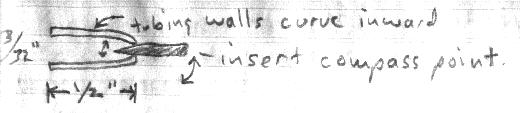 tubing walls curve inward
3/32"
insert compass point.
1/2"